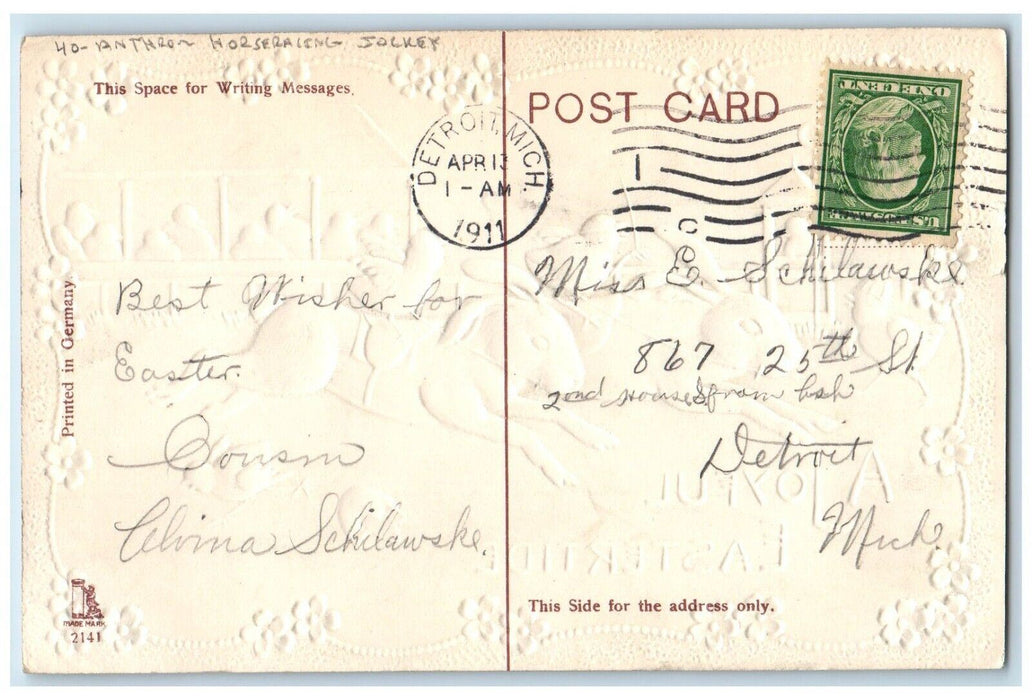 40- ANTHRO HORSERACING JOCKEY
This Space for Writing Messages.
POST CARD
DETROIT, MICH.
APR 13
1 - AM
1911
ONE CENT
U.S. POSTAGE
Miss E. Schilawske
Best Wishes for
867 25th St
Easter.
2nd house from
Printed in Germany
Cousin
Detroit
A JOYFUL
EASTERTIDE
Elvina Schilawske.
Mich
This Side for the address only.
TRADE MARK
2141